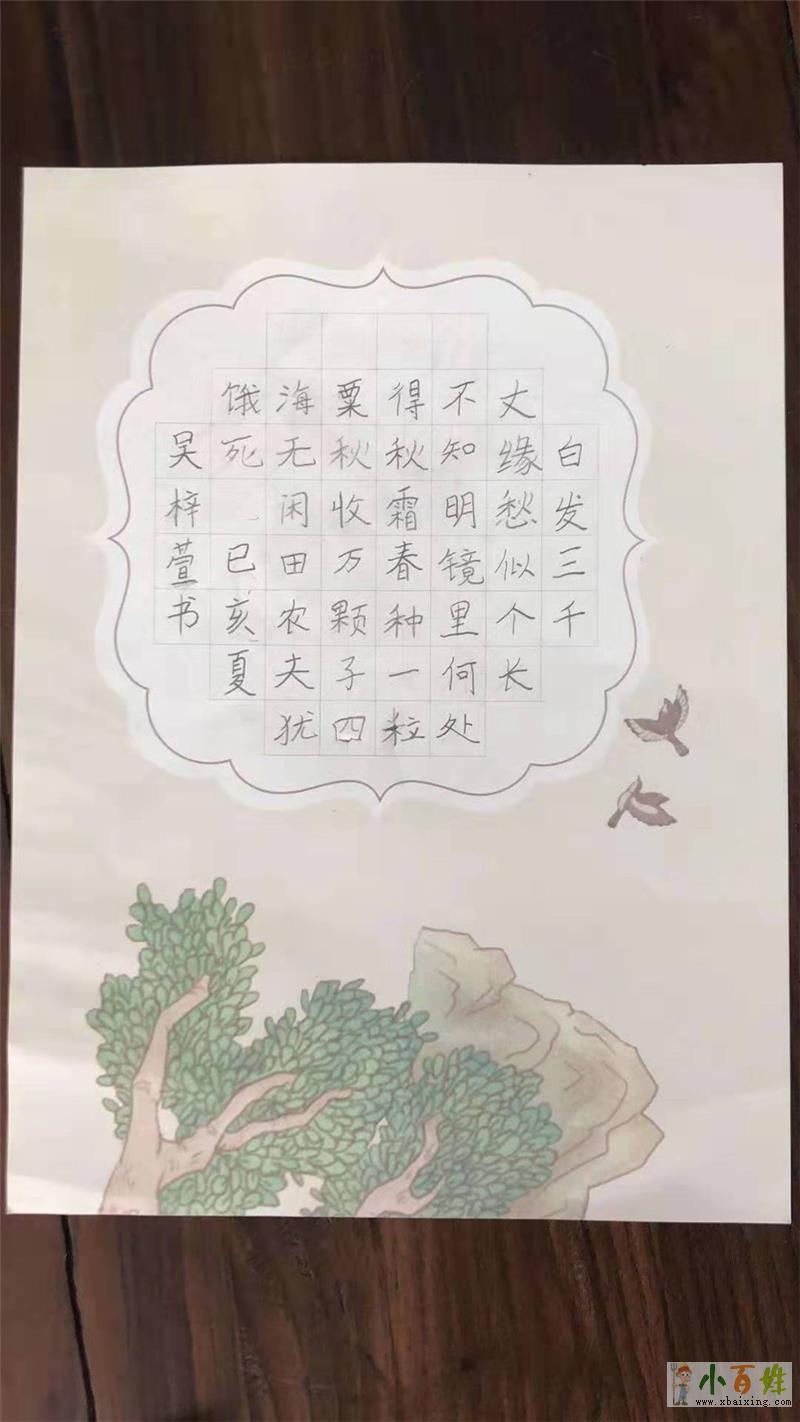 白发三千
丈缘愁似个长
不知明镜里何处
得秋霜春种一粒
粟秋收万颗子四
海无闲田农夫犹
饿死 已亥夏
吴梓萱书
小百姓
www.xbaixing.com